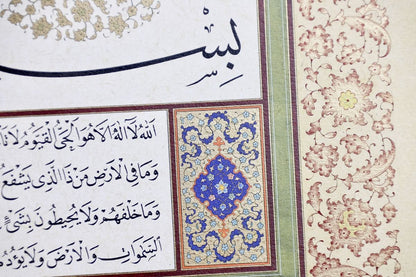 بِسْ
اَللهُ لَا اِلٰهَ اِلَّا هُوَ الْحَىُّ الْقَيُّومُ لَا تَأ
وَمَا فِى الْاَرْضِ مَنْ ذَا الَّذٖى يَشْفَعُ
وَمَا خَلْفَهُمْ وَلَا يُحٖيطُونَ بِشَىْءٍ
السَّمٰوَاتِ وَالْاَرْضَ وَلَا يَؤُدُهُ